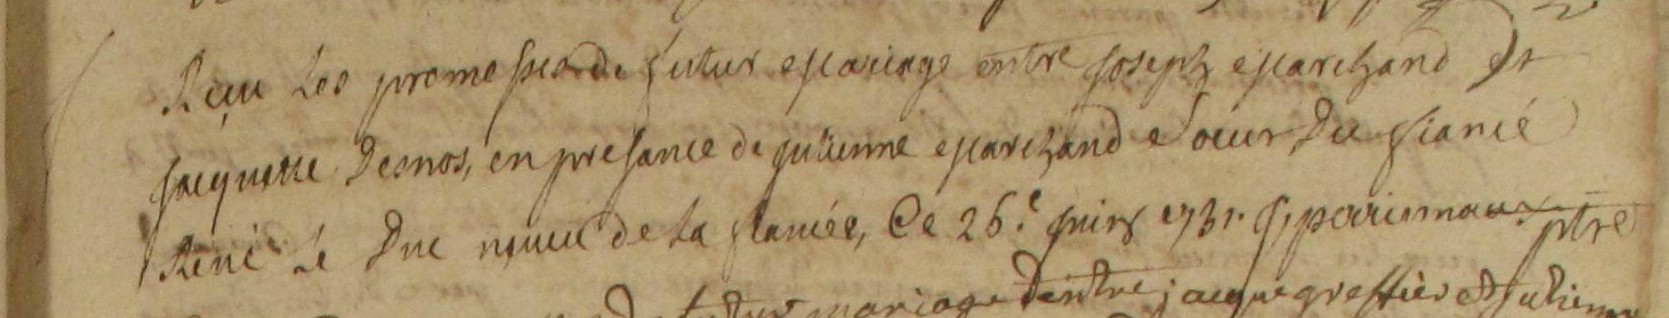 Reçu Les promesses de futur Mariage entre Joseph Marchand Et
Jacquette Desnos, en presance de Julienne Marchand Soeur Du fiancé
René Le Duc neveu de La fiancée, Ce 26.e juin 1731. ptre
futur mariage Dentre jacque greffier et Julienne